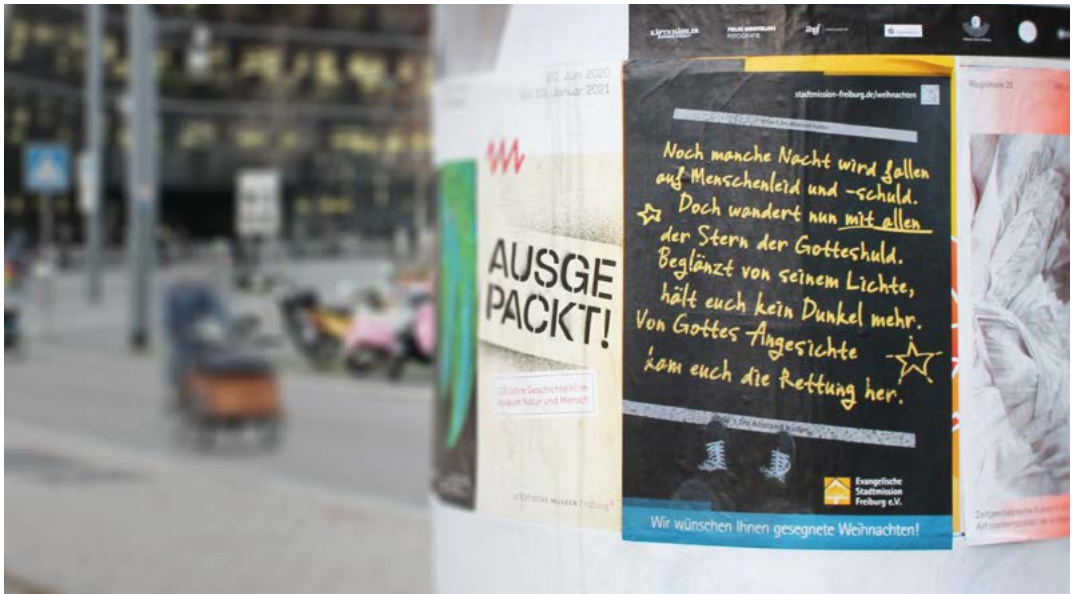 KÄPT'N HÄSSLER
FOTOGRAFIE
20. Juni 2020
bis 10. Januar 2021
AUSGE
PACKT!
Jahre Geschichte(n) im
Museum Natur und Mensch
STÄDTISCHE MUSEEN Freiburg
stadtmission-freiburg.de/weihnachten
Noch manche Nacht wird fallen
auf Menschenleid und -schuld.
Doch wandert nun mit allen
der Stern der Gotteshuld.
Beglänzt von seinem Lichte,
hält euch kein Dunkel mehr.
Von Gottes Angesichte
kam euch die Rettung her.
1,5m Abstand halten
Evangelische
Stadtmission
Freiburg e.V.
Wir wünschen Ihnen gesegnete Weihnachten!
Regionale 21
Zeitgenössische Kunst
Art contemporain